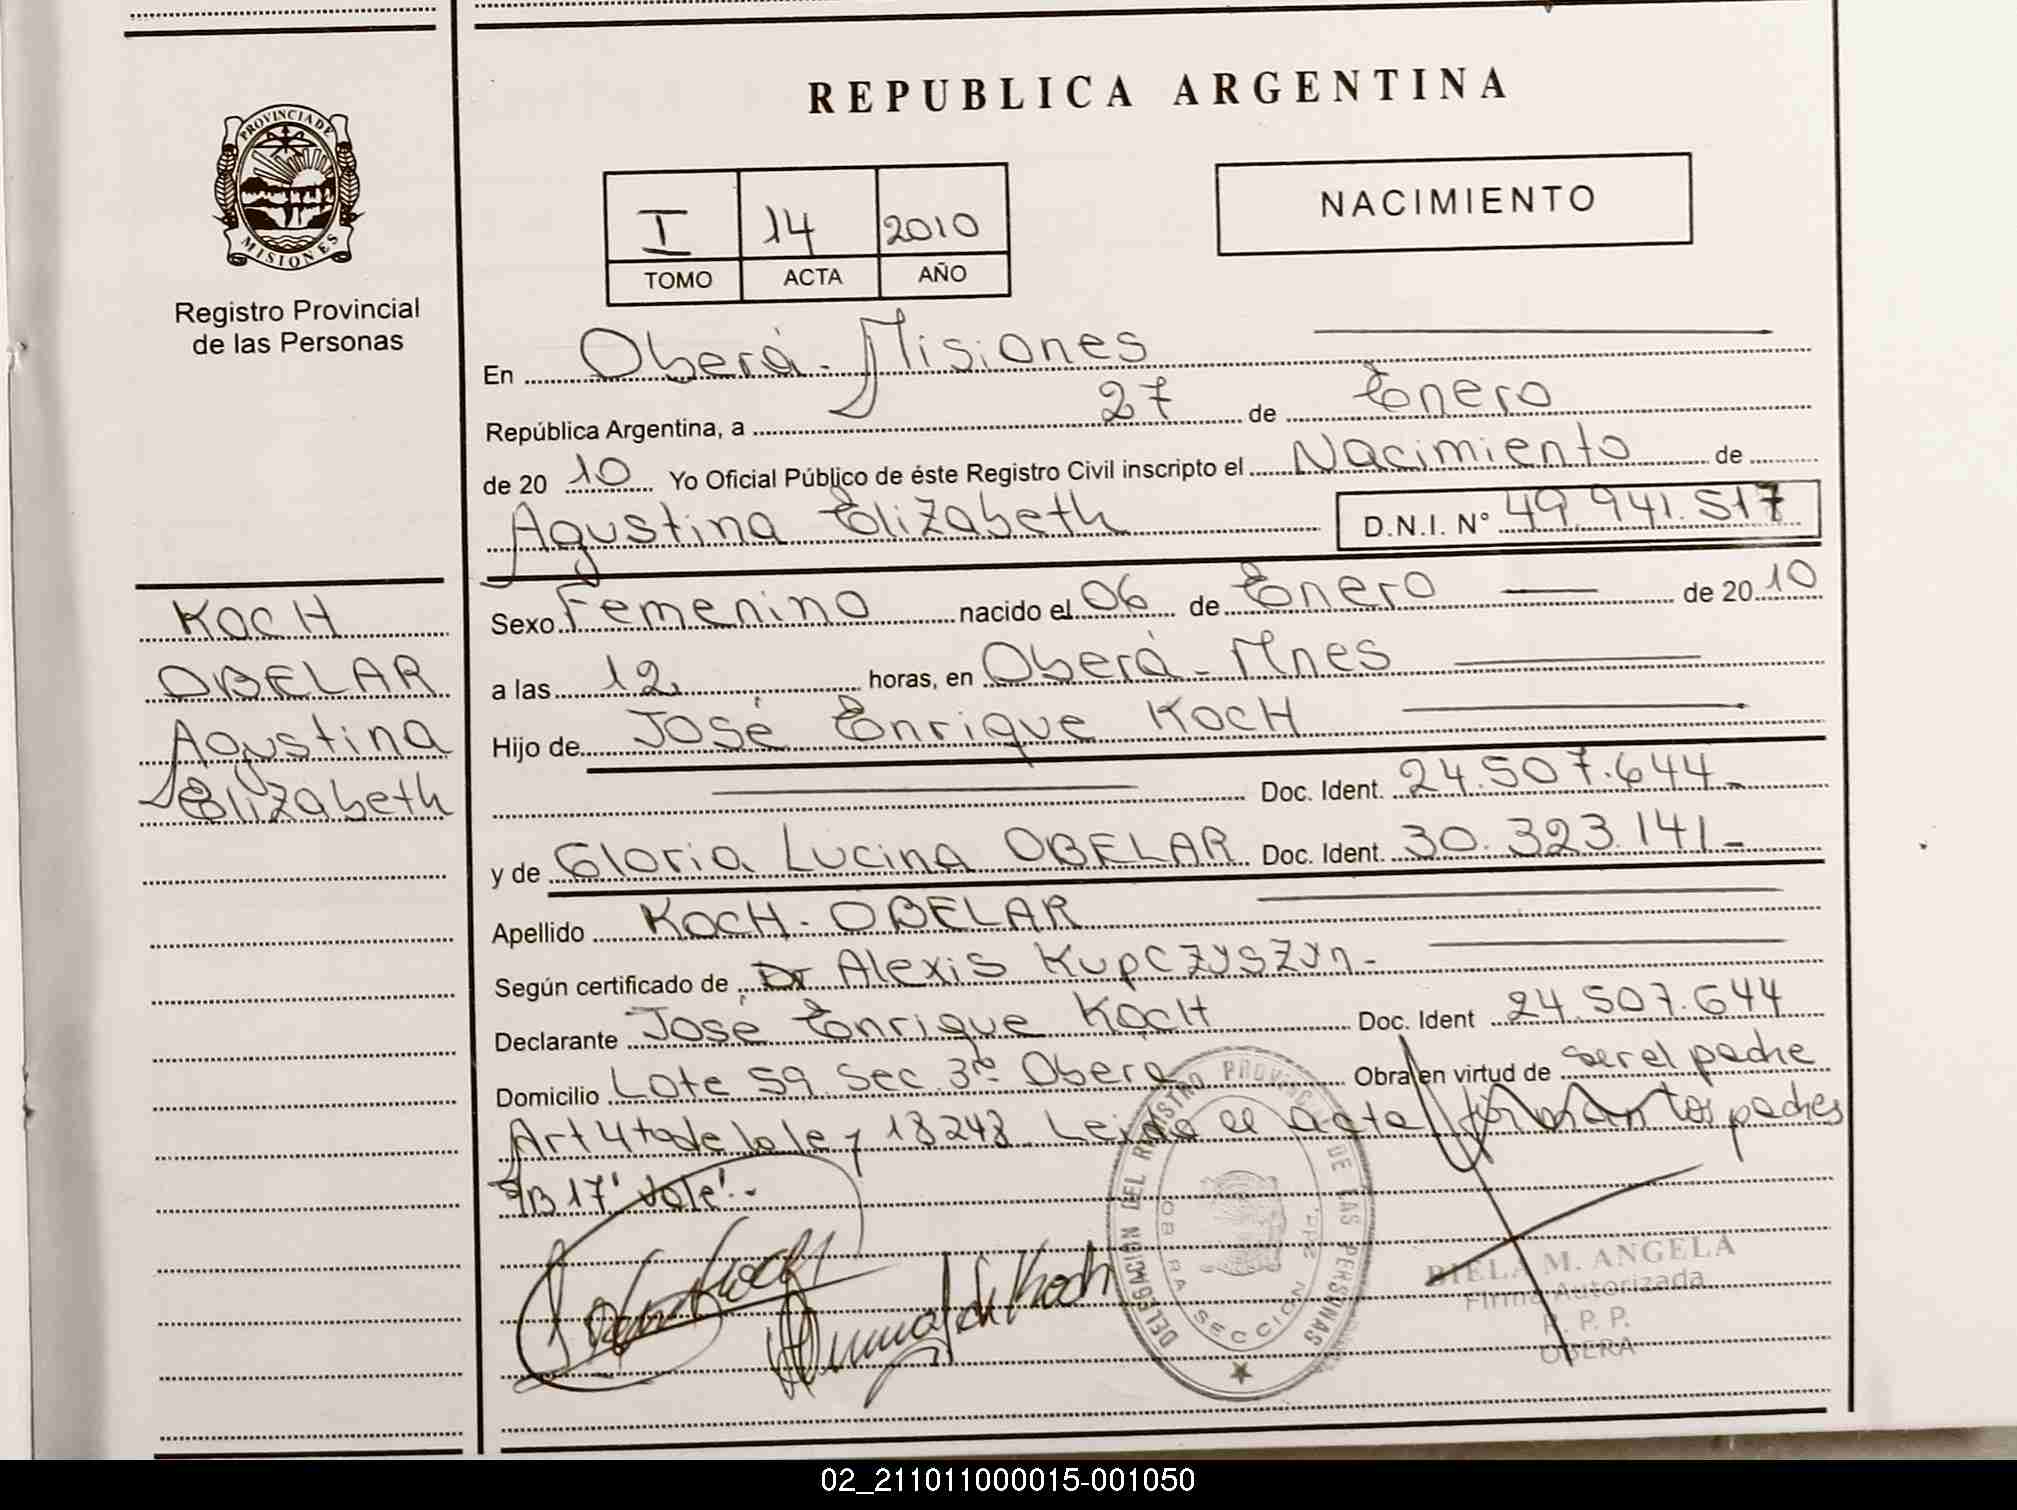 REPUBLICA ARGENTINA
PROVINCIA DE
MISIONES
Registro Provincial
de las Personas
I 14 2010
TOMO ACTA AÑO
NACIMIENTO
En Oberá - Misiones
República Argentina, a 27 de Enero
de 20 10 Yo Oficial Público de éste Registro Civil inscripto el Nacimiento de
Agustina Elizabeth D.N.I. N° 49.941.517
KOCH
OBELAR
Agustina
Elizabeth
Sexo Femenino nacido el 06 de Enero de 20 10
a las 12 horas, en Oberá - Mnes
Hijo de José Enrique KOCH
Doc. Ident. 24.507.644.-
y de Gloria Lucina OBELAR Doc. Ident. 30.323.141.-
Apellido KOCH - OBELAR
Según certificado de Dr Alexis Kupczyszyn.-
Declarante José Enrique KOCH Doc. Ident 24.507.644
Domicilio Lote 59 Sec 3ª Obera Obra en virtud de ser el padre
Art 4to de la ley 18248 Leida el acta firman los padres
17 vale.-
DELEGACION DEL REGISTRO PROVINCIAL DE LAS PERSONAS
OBERA SECCION 2da.
BIELA M. ANGELA
Firma Autorizada
R. P. P.
OBERA
02_211011000015-001050